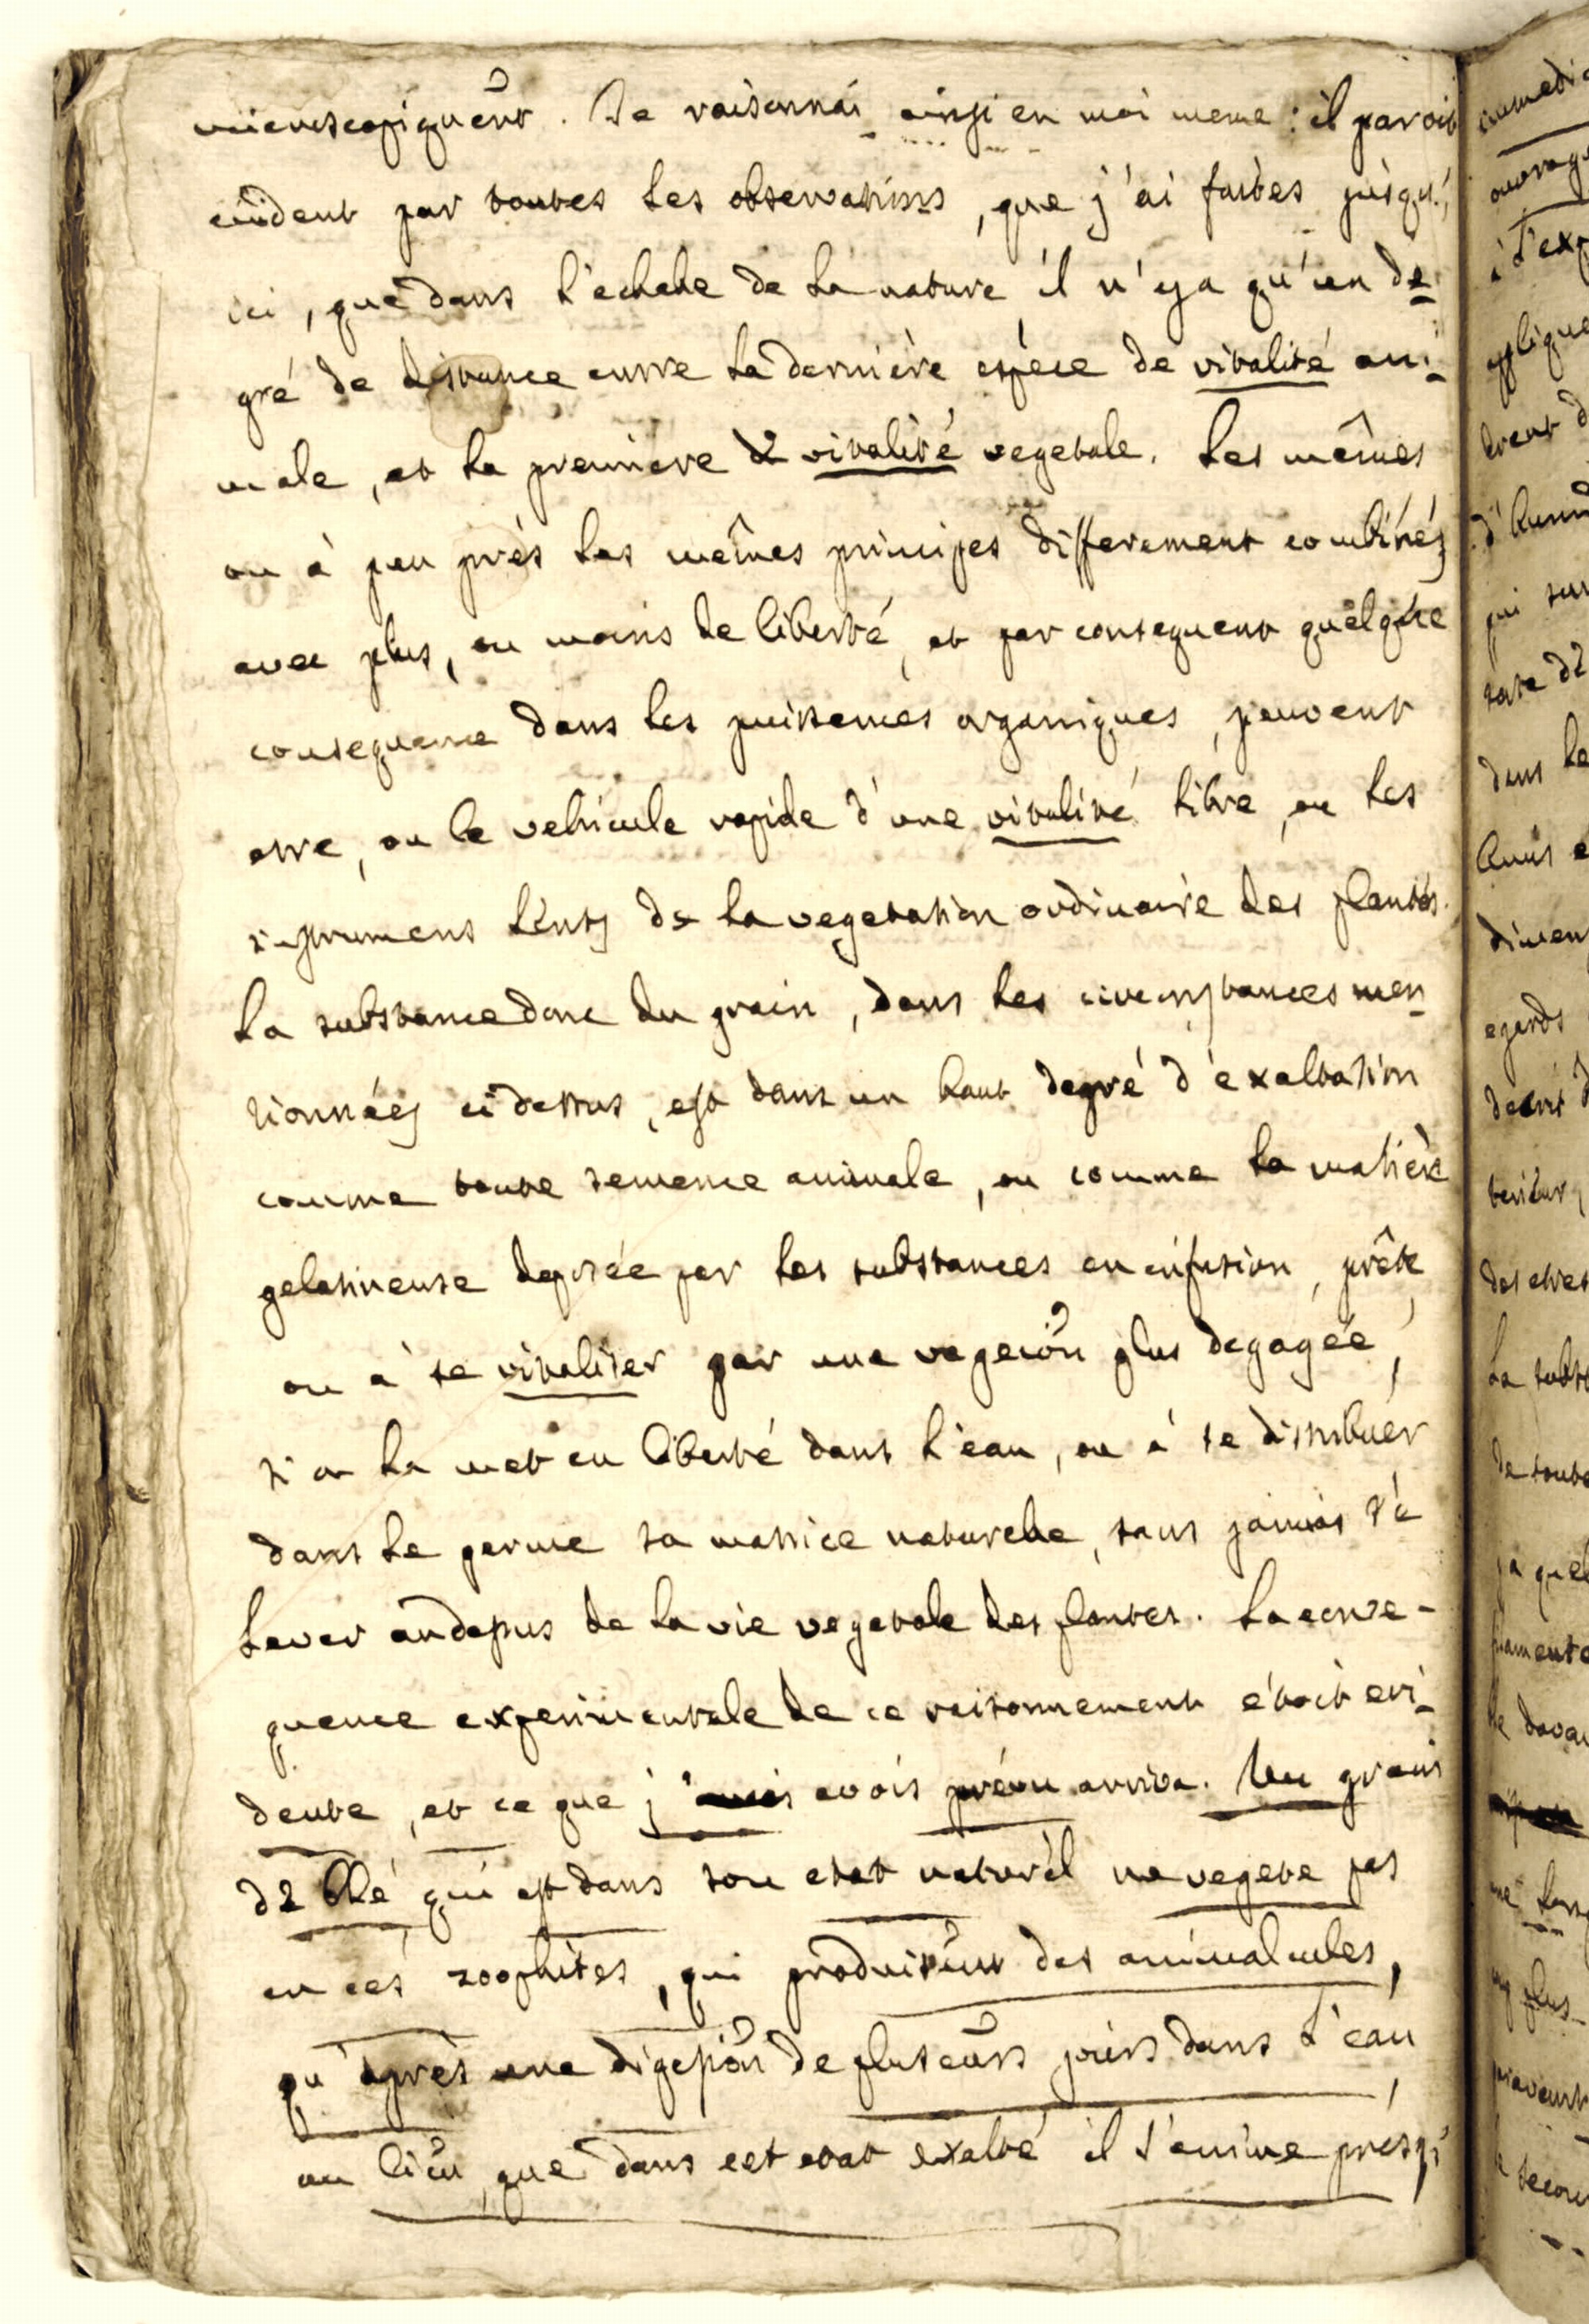 microscopiquem̃t. Je raisonnai ainsi en moi meme : il paroit
evident par toutes les observations, que j'ai faites jusqu'
ici, que dans l'echelle de la nature il n'y a qu'un de-
gré de distance entre la derniere espece de vitalité ani-
male, et la premiere de vitalité vegetale. Les mêmes
ou à peu près les mêmes principes differement combinés
avec plus, ou moins de liberté, et par consequent quelque
consequence dans les puissances organiques, peuvent
etre, ou le vehicule rapide d'une vitalité libre, ou les
instrumens lents de la vegetation ordinaire des plantes.
La substance donc du grain, dans les circonstances men-
tionnées ci dessus, est dans un haut degré d'exaltation
comme toute semence animale, ou comme la matiere
gelatineuse deposée par les substances en infusion, prête
ou à se vitaliser par une vegeciõn plus degagée,
si on la met en liberté dans l'eau, ou à se distribuer
dans le germe sa matrice naturelle, sans jamais s'é
lever au dessus de la vie vegetale des plantes. La conse-
quence experimentale de ce raisonnement étoit evi-
dente, et ce que j' avois prévu arriva. Un grain
de blé qui est dans son etat naturel ne vegete pas
en ces zoophites, qui produisẽnt des animalcules,
qu'après une digestiõn de plusieurs jours dans l'eau
au lieu que dans cet etat exalté il s'anime presqu'
immedi
ouvrage
à l'exp
applique
qui sur
dans le
egards
decrit
des etres
la subst
de toute